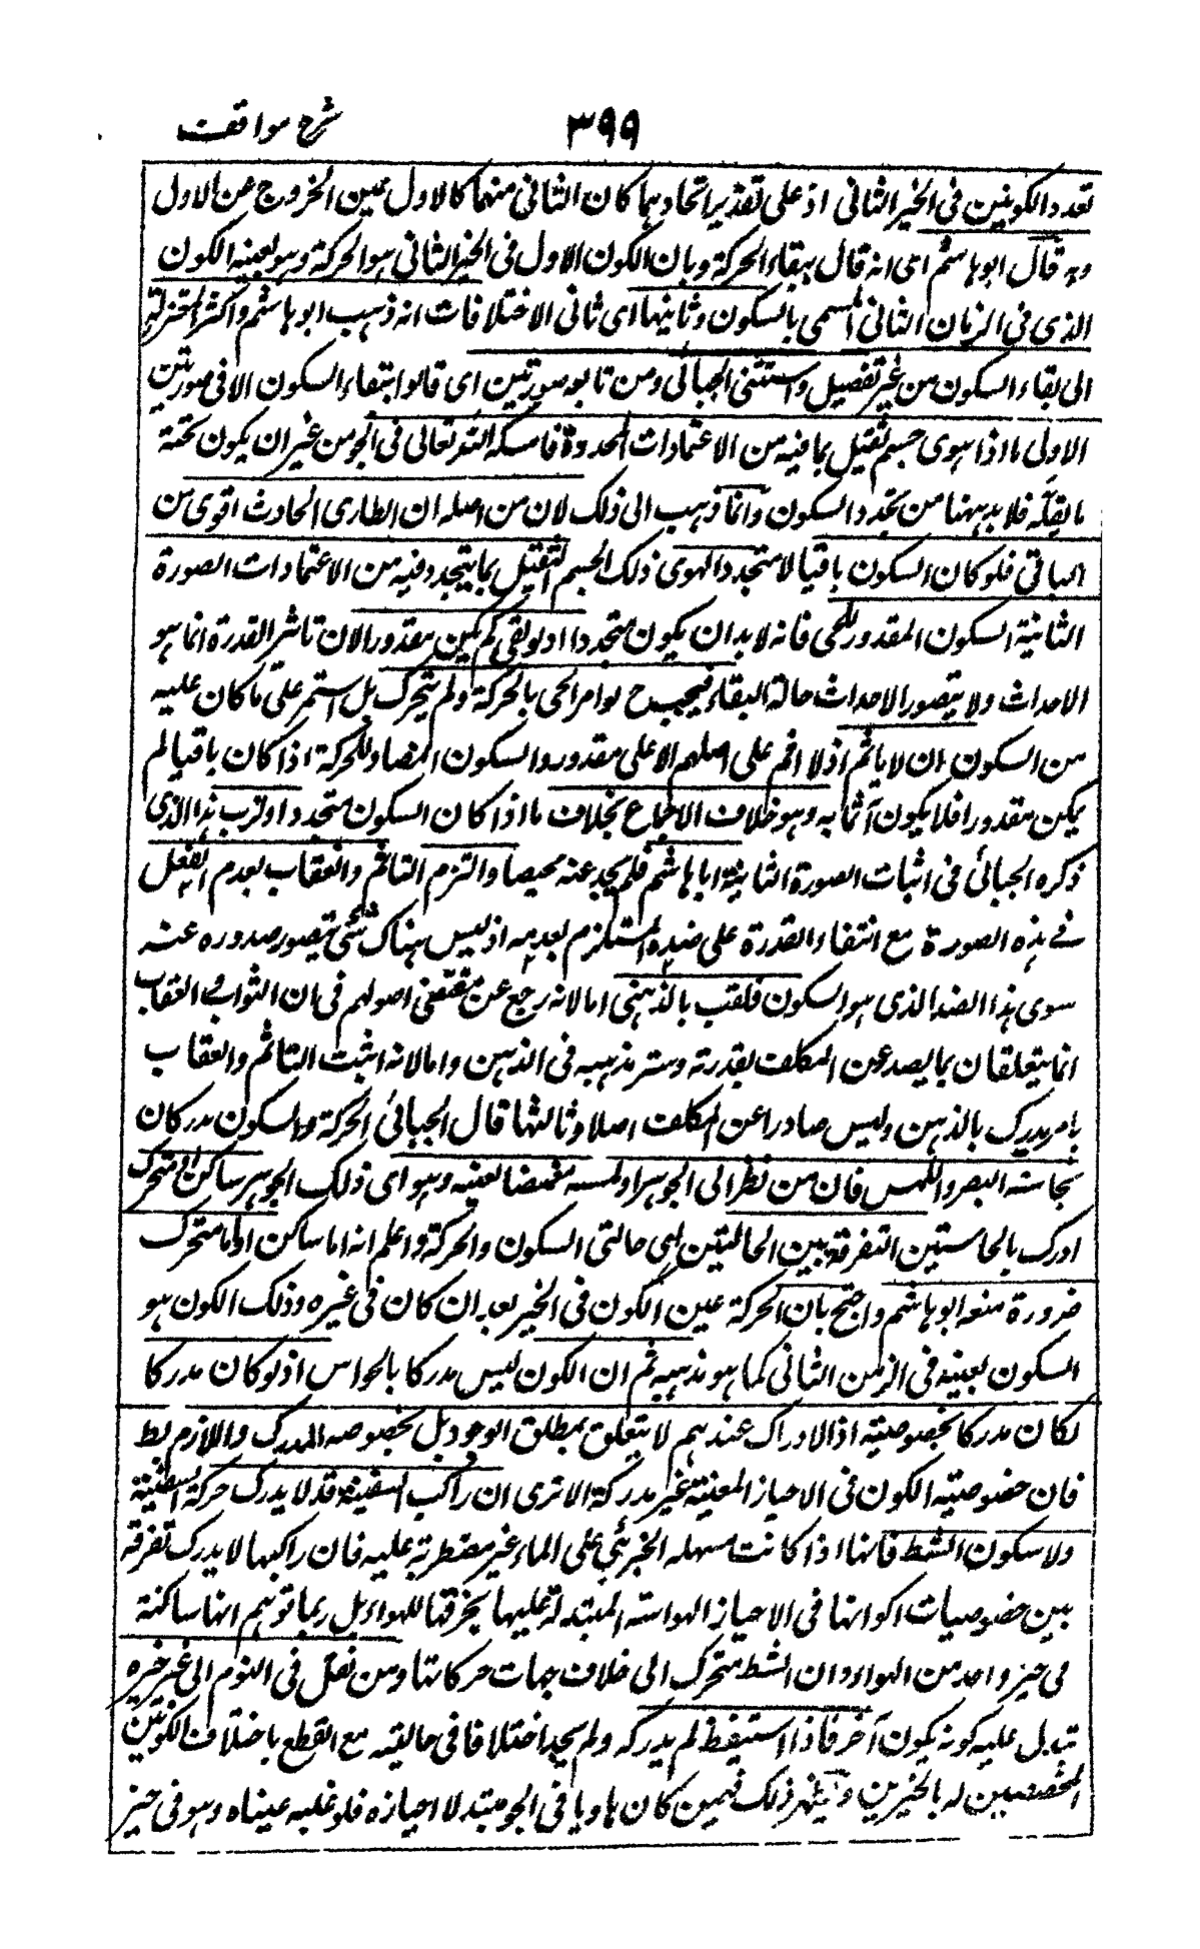 شرح مواقف
۳۹۹
تعدد الكونين فى الحيز الثانى اذ على تقدير اتحادهما كان الثانى منهما كالاول عين الخروج عن الاول
وبه قال ابو هاشم اى انه قال ببقاء الحركة وبان الكون الاول فى الحيز الثانى هو الحركة وهو بعينه الكون
الذى فى الزمان الثانى المسمى بالسكون وثانيها اى ثانى الاختلافات انه ذهب ابو هاشم واكثر المعتزلة
الى بقاء السكون من غير تفصيل واستثنى الجبائى ومن تابعه صورتين اى قالوا ببقاء السكون الا فى صورتين
الاولى ما اذا هوى جسم ثقيل بما فيه من الاعتمادات المحدودة فامسكه الله تعالى فى الجو من غير ان يكون تحته
ما يقله فلا بد ههنا من تجدد السكون وانما ذهب الى ذلك لان من اصله ان الطارى الحادث اقوى من
الباقى فلو كان السكون باقيا لا متجددا لهوى ذلك الجسم الثقيل بما يتجدد فيه من الاعتمادات الصورة
الثانية السكون المقدور للحى فانه لا بد ان يكون متجددا اذ لو بقى لم يكن مقدورا لان تاثير القدرة انما هو
الاحداث ولا يتصور الاحداث حالة البقاء فيجب ح لو امر الحى بالحركة ولم يتحرك بل استمر على ما كان عليه
من السكون ان لا ياثم اذ لا اثم على اصلهم الا على مقدور والسكون المضاد للحركة اذا كان باقيا لم
يكن مقدورا فلا يكون آثما به وهو خلاف الاجماع بخلاف ما اذا كان السكون متجددا والزم بهذا الذى
ذكره الجبائى فى اثبات الصورة الثانية ابا هاشم فلم يجد عنه محيصا والتزم التاثم والعقاب بعدم الفعل
فى هذه الصورة مع انتفاء القدرة على ضده المستلزم لعدمه اذ ليس هناك شئ يتصور صدوره عنه
سوى هذا الضد الذى هو السكون فلقب بالذهنى اما لانه رجع عن مقتضى اصولهم فى ان الثواب والعقاب
انما يتعلقان بما يصدر عن المكلف بقدرته وستر مذهبه فى الذهن واما لانه اثبت التاثم والعقاب
بامر يدرك بالذهن وليس صادرا عن المكلف اصلا وثالثها قال الجبائى الحركة والسكون مدركان
بحاسة البصر واللمس فان من نظر الى الجوهر او لمسه مغمضا لعينه وهو اى ذلك الجوهر ساكن او متحرك
ادرك بالحاستين التفرقة بين الحالتين اى حالتى السكون والحركة واعلم انه اما ساكن او اما متحرك
ضرورة منعه ابو هاشم واحتج بان الحركة عين الكون فى الحيز بعد ان كان فى غيره وذلك الكون هو
السكون بعينه فى الزمن الثانى كما هو مذهبه ثم ان الكون ليس مدركا بالحواس اذ لو كان مدركا
لكان مدركا بخصوصيته اذ الادراك عندهم لا يتعلق بمطلق الوجود بل بخصوصه المدرك واللازم بط
فان خصوصية الكون فى الاحياز المعينة غير مدركة الا ترى ان راكب السفينة قد لا يدرك حركة السفينة
ولا سكون الشط فانها اذا كانت سهلة الجرى على الماء غير مضطربة عليه فان راكبها لا يدرك تفرقة
بين خصوصيات اكوانها فى الاحياز الهوائية المتبدلة عليها بخرقها للهواء بل ربما توهم انها ساكنة
فى حيز واحد من الهواء وان الشط متحرك الى خلاف جهات حركاتها ومن نقل فى النوم الى غير حيزه
تبدل عليه كونه بكون آخر فاذا استيقظ لم يدركه ولم يجد اختلافا فى حالتيه مع القطع باختلاف الكونين
المخصصين له بالحيزين ويظهر ذلك فيمن كان هاويا فى الجو متبدلا احيازه فلو غلبه عيناه وهو فى حيز